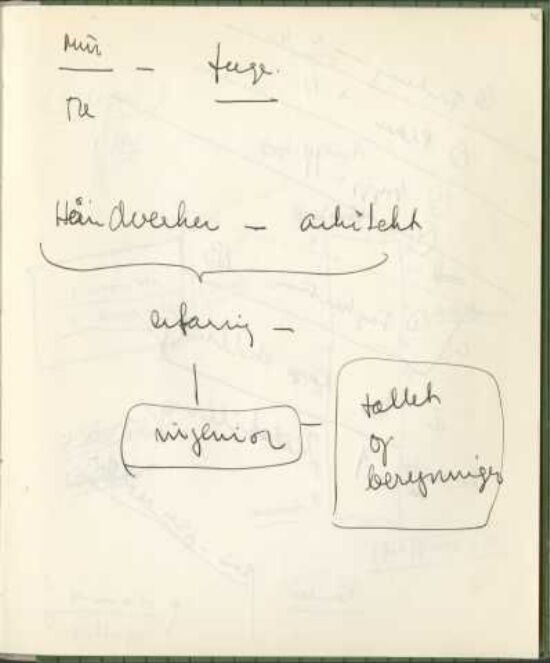 mur – fuge.
Håndverker – arkitekt
erfaring –
ingeniør
tallet
og
beregninger